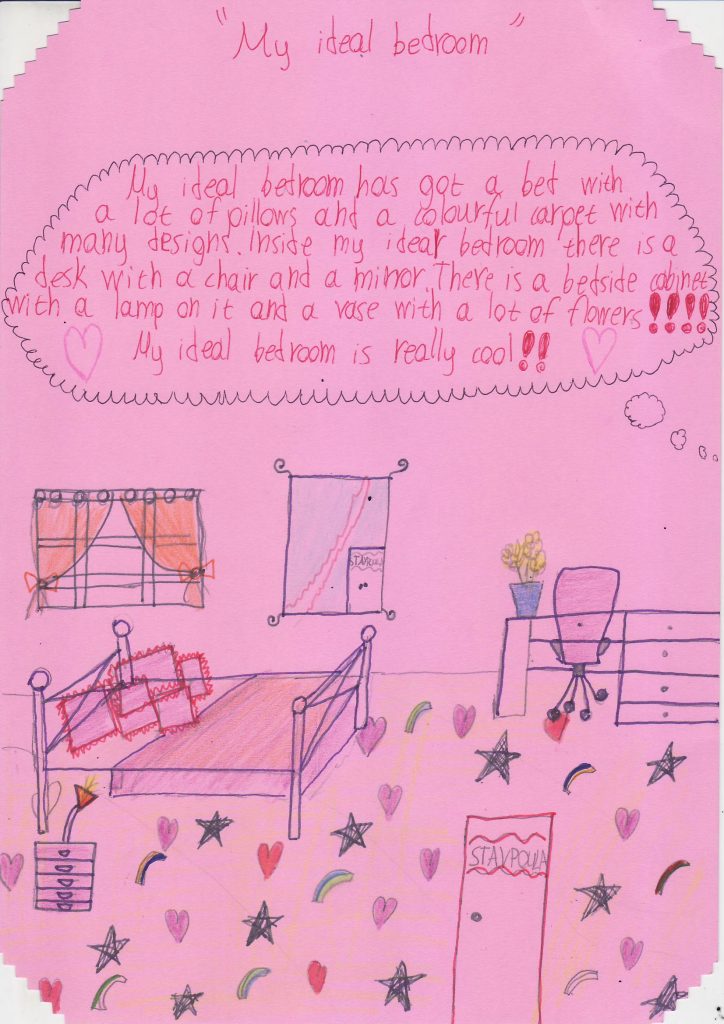 "My ideal bedroom"
My ideal bedroom has got a bed with
a lot of pillows and a colourful carpet with
many designs. Inside my ideal bedroom there is a
desk with a chair and a mirror. There is a bedside cabinet
with a lamp on it and a vase with a lot of flowers!!!!
My ideal bedroom is really cool!!
STAVROULA
STAVPOULA